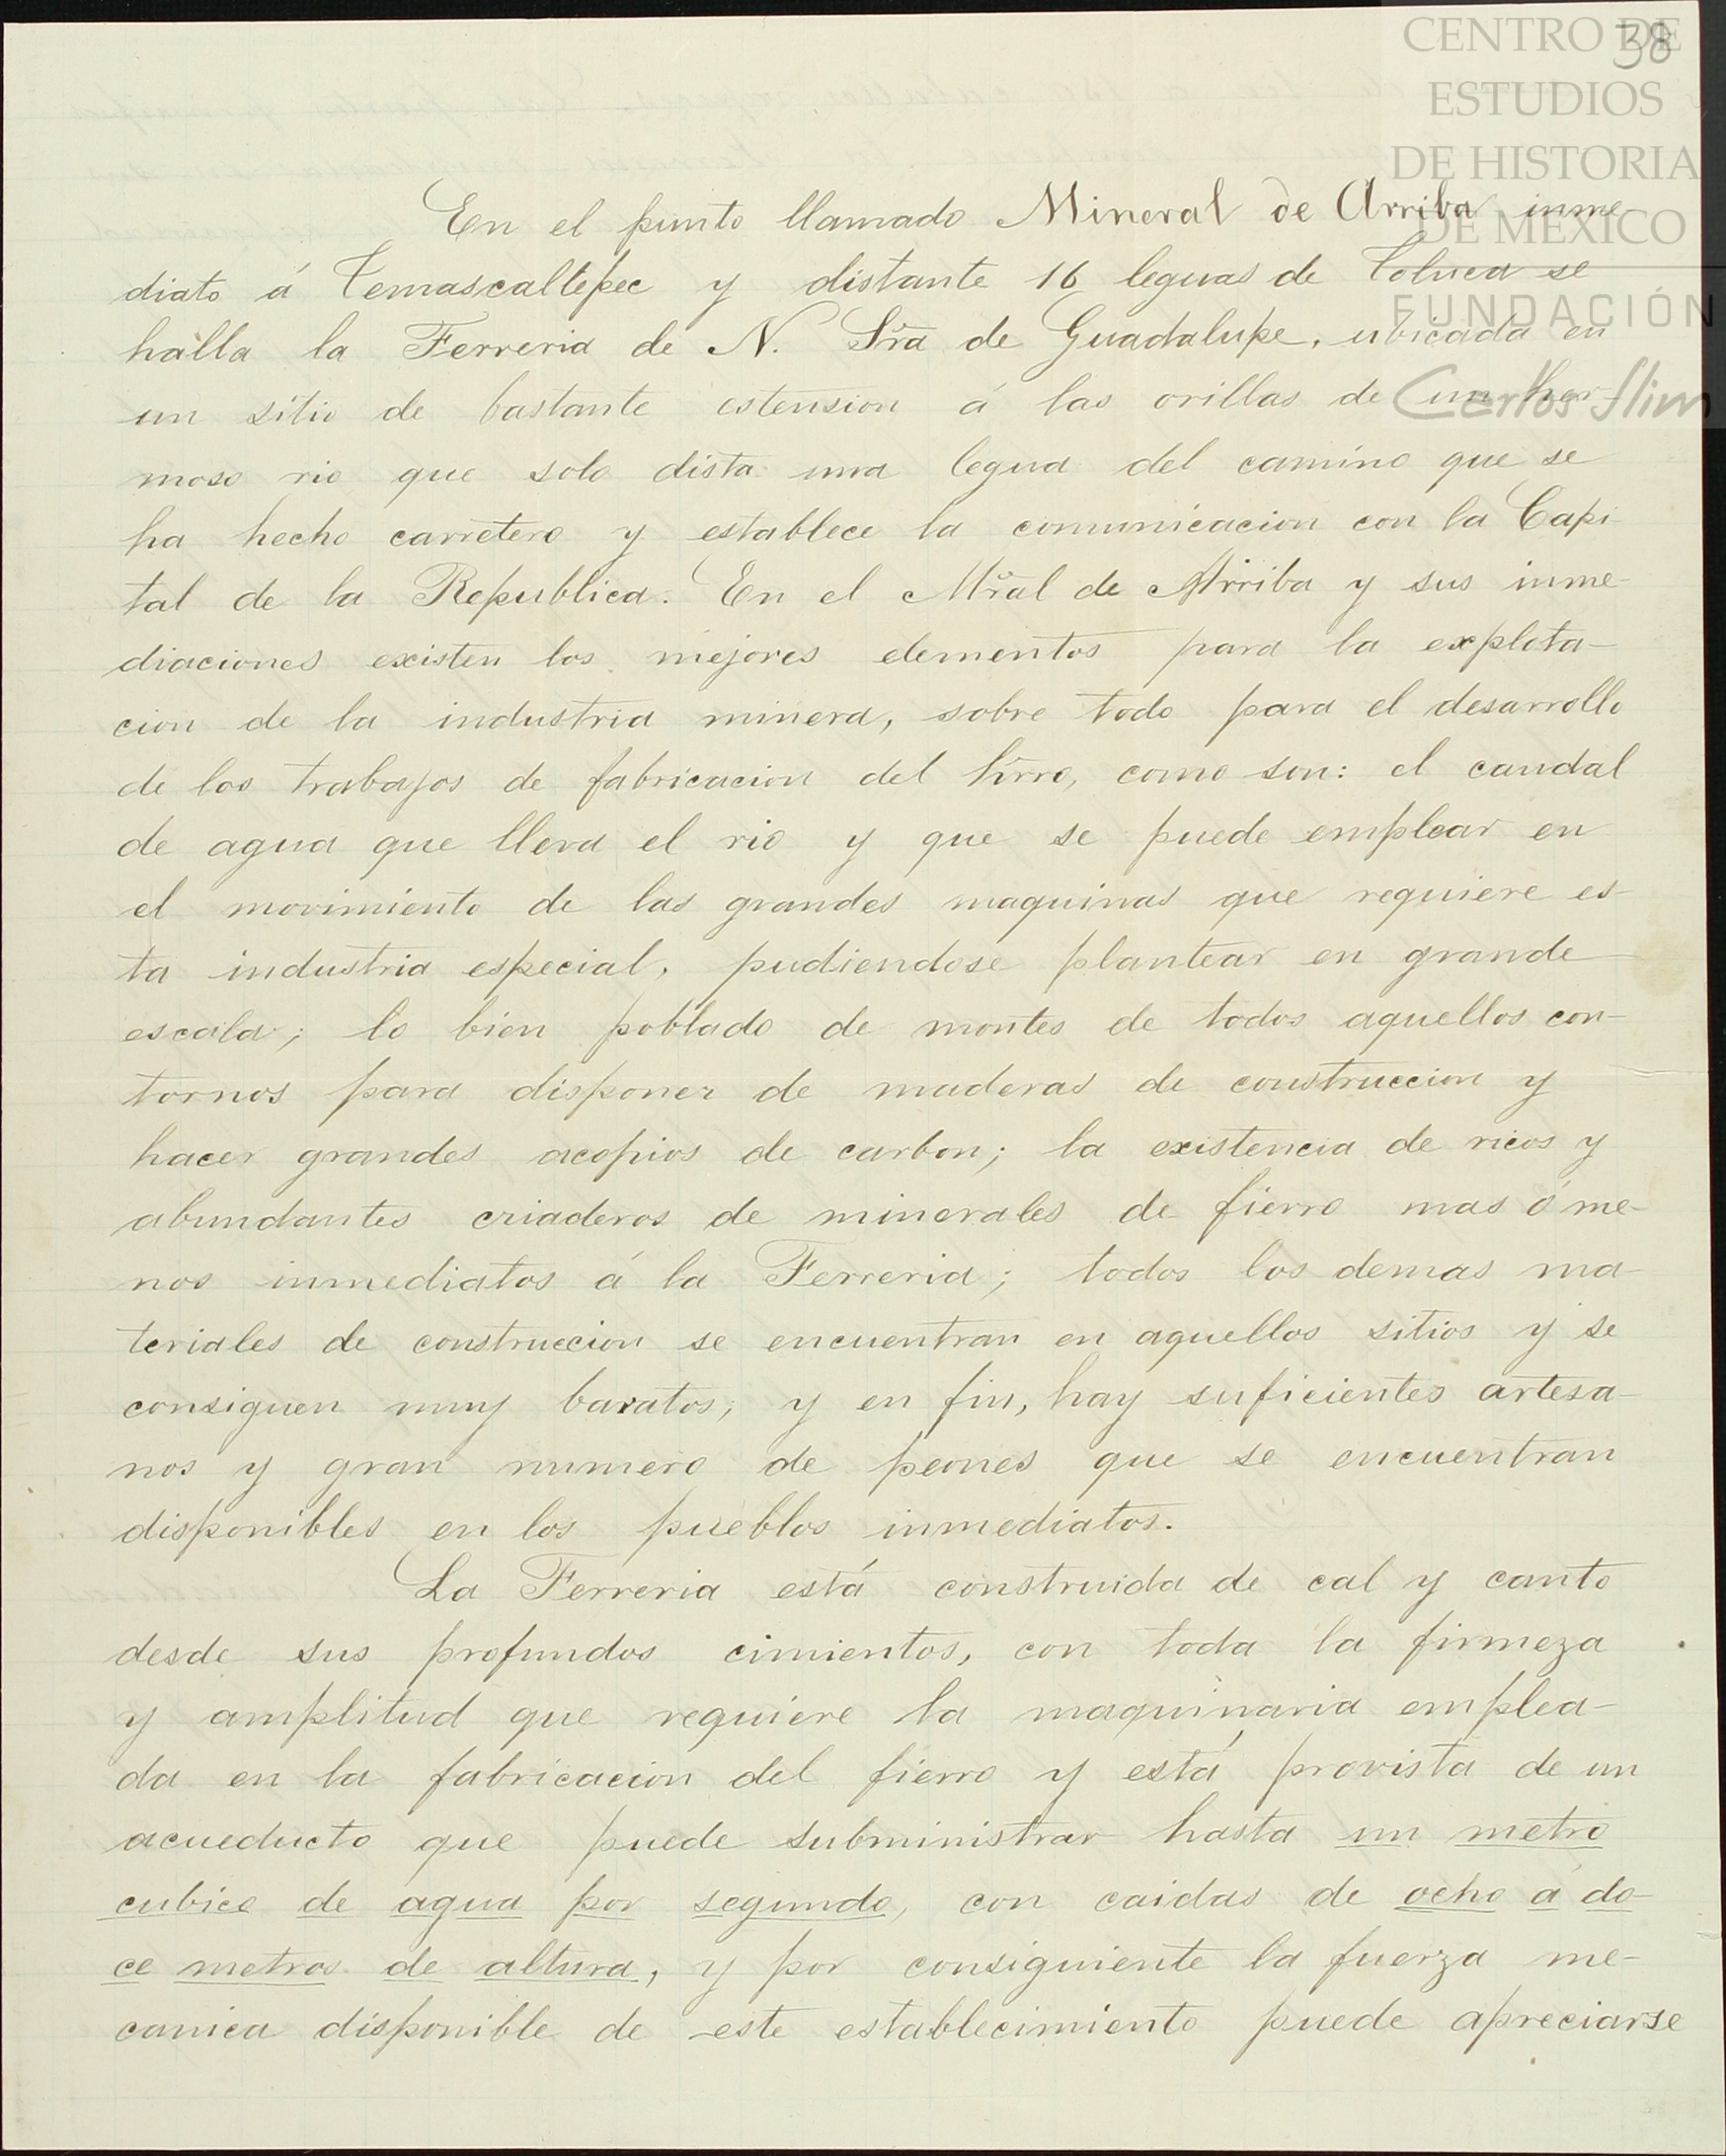 38
CENTRO DE
ESTUDIOS
DE HISTORIA
DE MEXICO
FUNDACIÓN
Carlos Slim
En el punto llamado Mineral de Arriba inme
diato á Temascaltepec y distante 16 leguas de Toluca se
halla la Ferreria de N. Sra de Guadalupe, ubicada en
un sitio de bastante estension á las orillas de un her-
moso rio que solo dista una legua del camino que se
ha hecho carretero y establece la comunicacion con la Capi
tal de la Republica. En el Mral de Arriba y sus inme-
diaciones existen los mejores elementos para la explota-
cion de la industria minera, sobre todo para el desarrollo
de los trabajos de fabricacion del firro, como son: el caudal
de agua que lleva el rio y que se puede emplear en
el movimiento de las grandes maquinas que requiere es-
ta industria especial, pudiendose plantear en grande
escala; lo bien poblado de montes de todos aquellos con-
tornos para disponer de maderas de construccion y
hacer grandes acopios de carbon; la existencia de ricos y
abundantes criaderos de minerales de fierro mas ó me-
nos inmediatos á la Ferreria; todos los demas ma-
teriales de construccion se encuentran en aquellos sitios y se
consiguen muy baratos; y en fin, hay suficientes artesa-
nos y gran numero de peones que se encuentran
disponibles en los pueblos inmediatos.
La Ferreria está construida de cal y canto
desde sus profundos cimientos, con toda la firmeza
y amplitud que requiere la maquinaria emplea-
da en la fabricacion del fierro y está provista de un
acueducto que puede subministrar hasta un metro
cubico de agua por segundo, con caidas de ocho á do-
ce metros de altura, y por consiguiente la fuerza me-
canica disponible de este establecimiento puede apreciarse